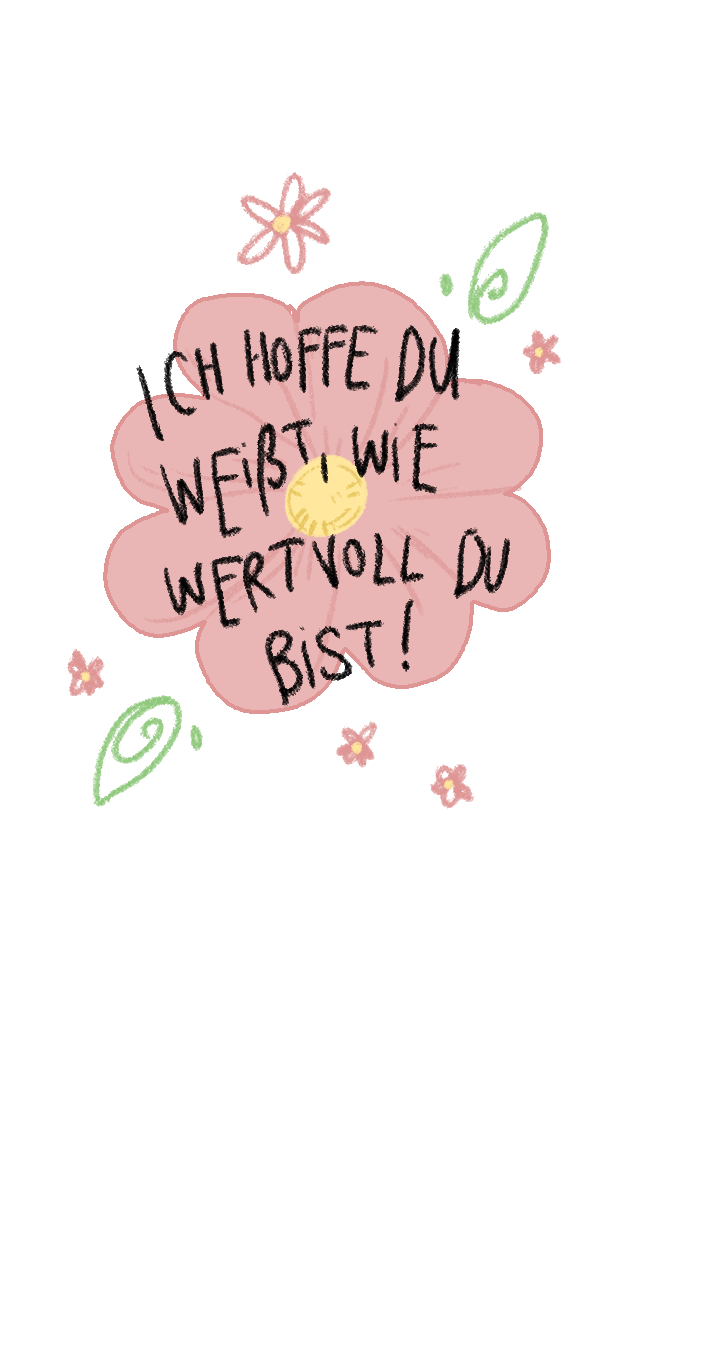 ICH HOFFE DU
WEIßT, WIE
WERTVOLL DU
BIST!